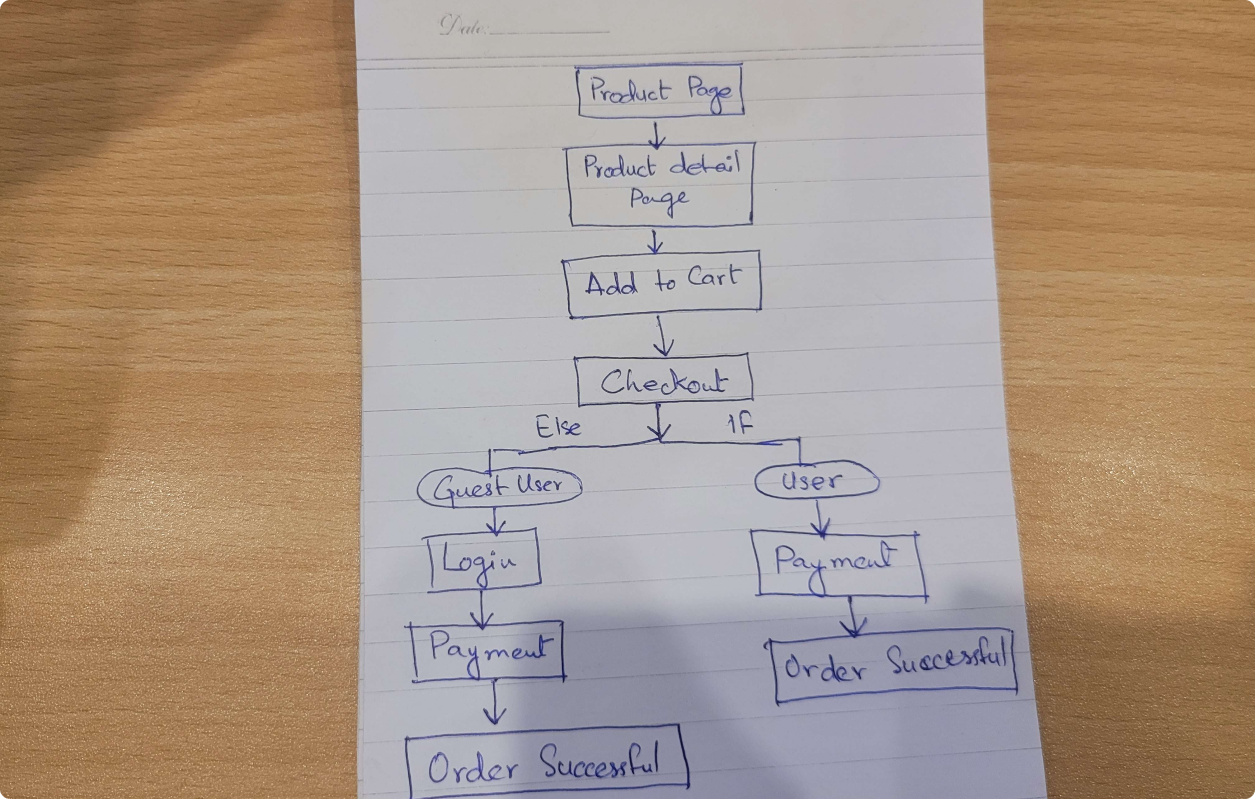 Date:
Product Page
Product detail
Page
Add to Cart
Checkout
Else
IF
Guest User
User
Login
Payment
Payment
Order Successful
Order Successful